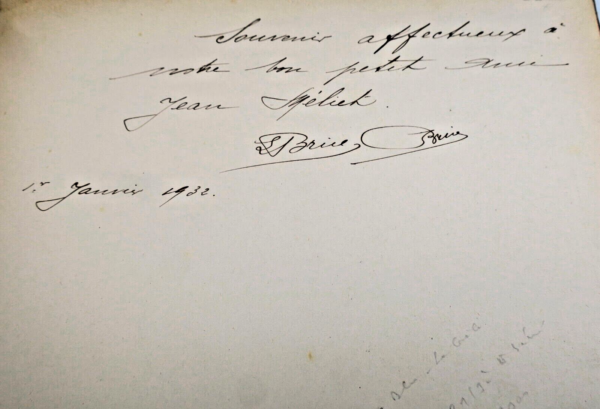 Souvenir affectueux à
notre bon petit ami
Jean
LBrice Brice
1er Janvier 1932.